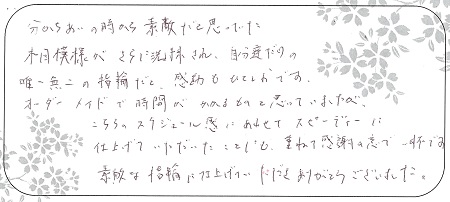 分かちあいの時から素敵だと思っていた
木目模様がさらに洗練され、自分達だけの
唯一無二の指輪だと、感動もひとしおです。
オーダーメイドで時間がかかるものと思っていましたが、
こちらのスケジュール感にあわせてスピーディーに
仕上げていただいたことにも、重ねて感謝の意で一杯です
素敵な指輪に仕上げていただきありがとうございました。